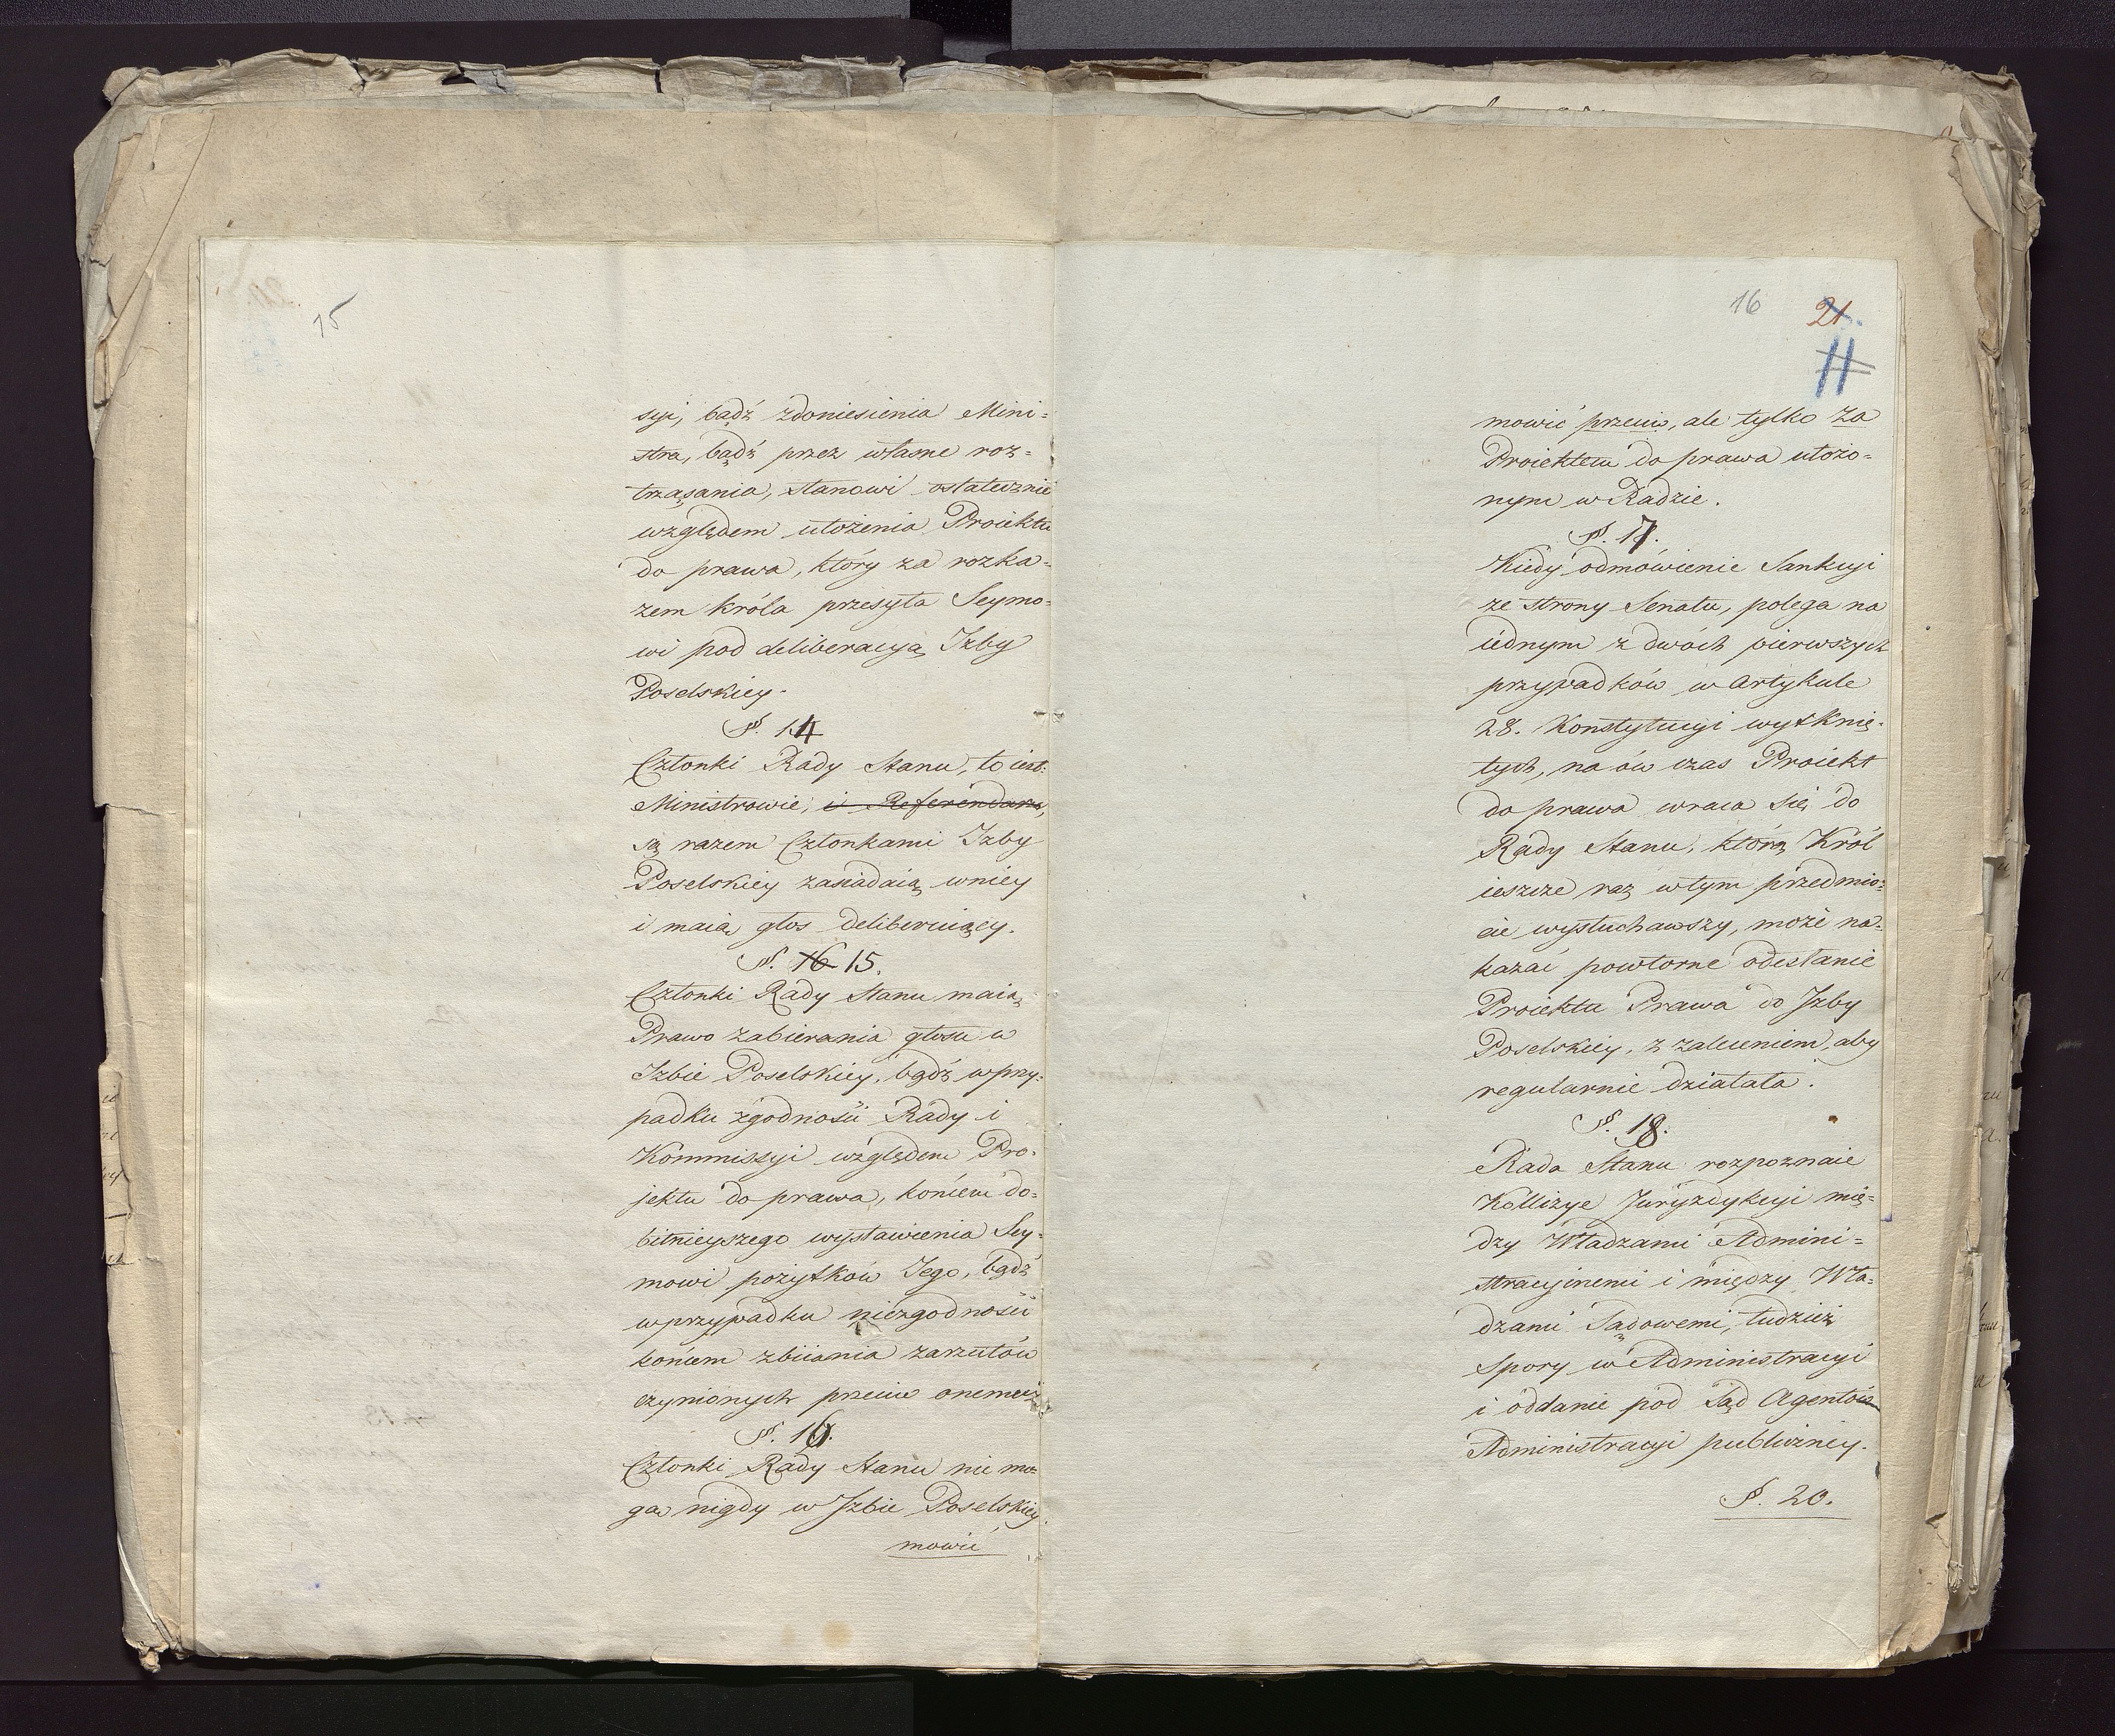 15
syi, bądź zdoniesienia Mini=
stra, bądź przez własne roz=
trząsania, stanowi ostatecznie
względem ułożenia Proiektu
do prawa, który za rozka=
zem króla przesyła Seymo=
wi pod deliberacyą Izby
Poselskiey.
§. 14
Członki Rady Stanu, to iest:
Ministrowie, i Referendarze,
są razem Członkami Izby
Poselskiey zasiadaią wniey
i maią głos deliberuiący.
§. 16 15.
Członki Rady Stanu maią
Prawo zabierania głosu w
Izbie Poselskiey, bądź wprzy=
padku zgodności Rady i
Kommissyi względem Pro=
jektu do prawa, końcem do=
bitnieyszego wystawienia Sey=
mowi pożytków Jego, bądź
wprzypadku niezgodności
końcem zbiiania zarzutów
czynionych przeciw onemuż
§. 16.
Członki Rady Stanu nie mo=
gą nigdy w Izbie Poselskiey
mowić
16 21.
11
mowić przeciw, ale tylko za
Proiektem do prawa ułożo=
nym w Radzie.
§. 17.
Kiedy odmówienie Sankcyi
ze strony Senatu, polega na
iednym z dwóch pierwszych
przypadków w Artykule
28. Konstytucyi wytknię=
tych, na ów czas Proiekt
do prawa wraca się do
Rady Stanu, którą Król
ieszcze raz wtym przedmio=
cie wysłuchawszy, może na=
kazać powtorne odesłanie
Proiektu Prawa do Izby
Poselskiey, z zaleceniem, aby
regularnie działała.
§. 18.
Rada Stanu rozpoznaie
Kollizye Juryzdykcyi mię=
dzy Władzami Admini=
stracyinemi i między Wła=
dzami Sądowemi, tudzież
Spory w Administracyi
i oddanie pod Sąd Agentów
Administracyi publiczney.
§. 20.